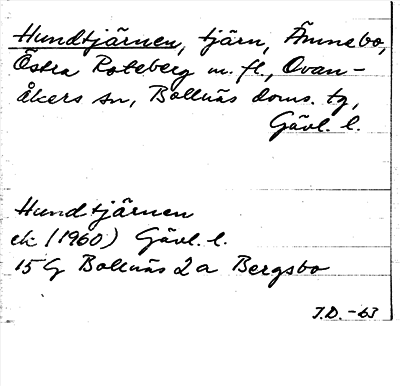 Hundtjärnen, tjärn, Ämnebo,
Östra Roteberg m. fl., Ovan-
åkers sn, Bollnäs doms. tg,
Gävl. l.
Hundtjärnen
ek (1960) Gävl. l.
15 G Bollnäs 2a Bergsbo
J.D. -63